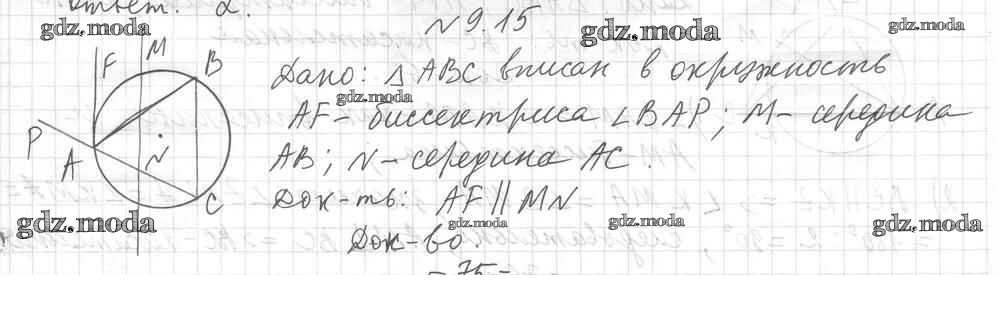 Ответ: 2.
№ 9.15
Дано: △ ABC вписан в окружность
AF - биссектриса ∠BAP; M - середина
AB; N - середина AC.
Док-ть: AF || MN
Док-во
- 75 -
F M B
P A N C
gdz.moda
gdz.moda
gdz.moda
gdz.moda
gdz.moda
gdz.moda
gdz.moda
gdz.moda